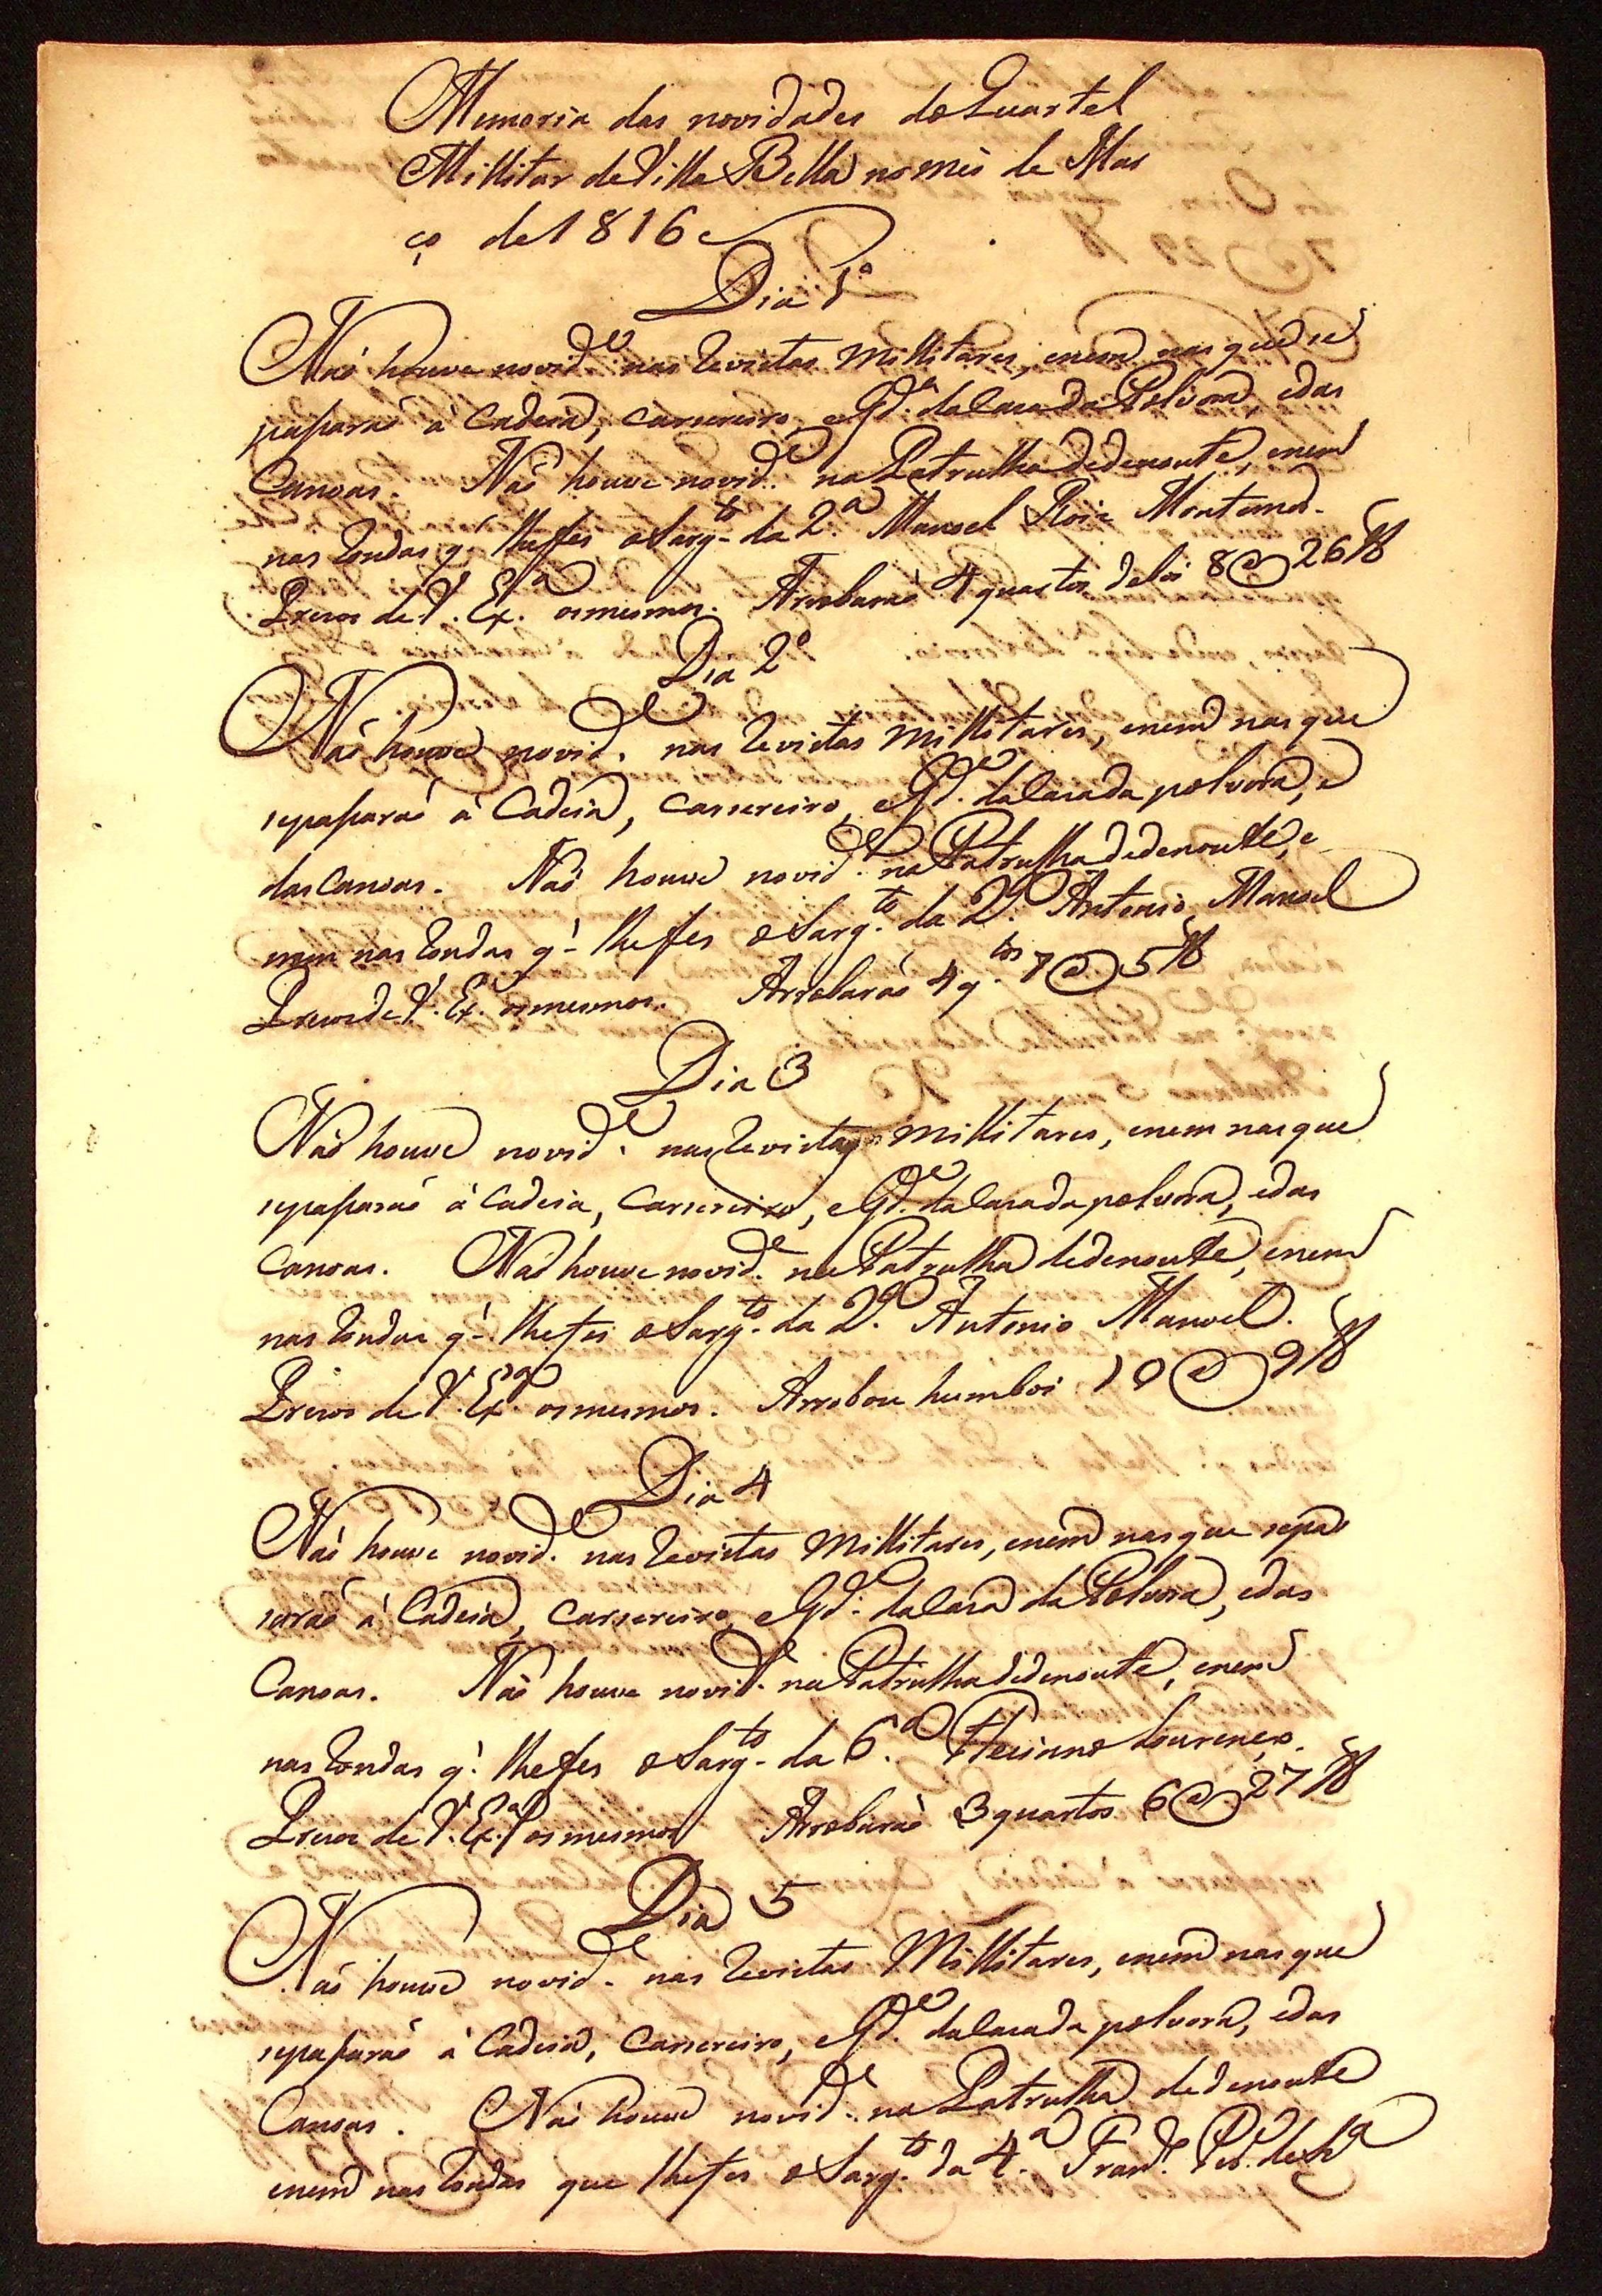 Memoria das novidades do Quartel
Millitar de Villa Bella no mês de Mar
ço de 1816
Dia 1º
Naõ houve novid.e nas Revistas Millitares, e nem nas que se
paſsaraõ à Cadeia, Carsereiro, e Gd.e da Casa da Polvora, e das
Canoas. Naõ houve novid.e na Patrulha dedenoute, e nem
nas Rondas q.' lhe fes o Sarg.to da 2.ª Manoel Roiz Montemor.
Prezos de V. Ex.ª os mesmos. Arrobaraõ 4 quartos de boi 8 @ 26 lb
Dia 2º
Naõ houve novid.e nas Revistas Millitares, e nem nas que
sepaſsaraõ à Cadeia, Carsereiro, e Gd.e da Casa da polvora, e
das Canoas. Naõ houve novid.e na Patrulha dedenoute, e
nem nas Rondas q.' lhe fes o Sarg.to da 2.ª Antonio Manoel
Prezos de V. Ex.ª os mesmos. Arrobaraõ 4 q.tos 7 @ 5 lb
Dia 3
Naõ houve novid.e nas Revistas Millitares, e nem nas que
sepaſsaraõ à Cadeia, Carsereiro, e Gd.e da Casa da polvora, e das
Canoas. Naõ houve novid.e na Patrulha dedenoute, e nem
nas Rondas q.' lhe fes o Sarg.to da 2.ª Antonio Manoel.
Prezos de V. Ex.ª os mesmos. Arrobou hum boi 10 @ 9 lb
Dia 4
Naõ houve novid.e nas Revistas Millitares, e nem nas que sepas
saraõ à Cadeia, Carsereiro, e Gd.e da Casa da Polvora, e das
Canoas. Naõ houve novid.e na Patrulha dedenoute, e nem
nas Rondas q.' lhe fes o Sarg.to da 6.ª Lourenço.
Prezos de V. Ex.ª os mesmos Arrobaraõ 3 quartos 6 @ 27 lb
Dia 5
Naõ houve novid.e nas Revistas Millitares, e nem nas que
sepaſsaraõ à Cadeia, Carsereiro, e Gd.e da Casa da polvora, e das
Canoas. Naõ houve novid.e na Patrulha dedenoute
e nem nas Rondas que lhe fes o Sarg.to da 4.ª